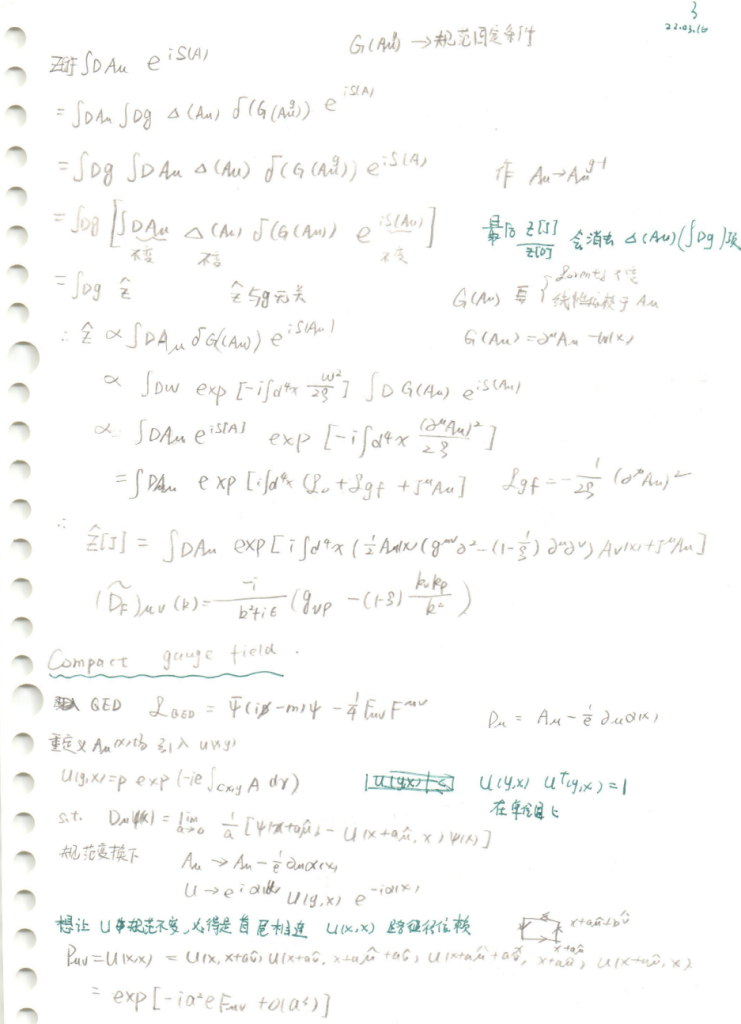 3
22.03.16
G(Aμ^g) → 规范固定条件
对 ∫DAμ e^{iS(A)}
= ∫DAμ ∫Dg Δ(Aμ) δ(G(Aμ^g)) e^{iS(A)}
= ∫Dg ∫DAμ Δ(Aμ) δ(G(Aμ^g)) e^{iS(A)} 作 Aμ→Aμ^{g-1}
= ∫Dg [∫DAμ Δ(Aμ) δ(G(Aμ)) e^{iS(Aμ)}] 最后 Z[J]/Z[0] 会消去 Δ(Aμ)(∫Dg)项
不变 不变 不变
= ∫Dg ẑ ẑ与g无关 G(Aμ) 要 { Lorentz 不变
线性依赖于 Aμ
∴ ẑ ∝ ∫DAμ δG(Aμ)) e^{iS(Aμ)} G(Aμ) = ∂^μAμ - w(x)
∝ ∫Dw exp[-i∫d⁴x w²/2ξ] ∫D G(Aμ) e^{iS(Aμ)}
∝ ∫DAμ e^{iS[A]} exp[-i∫d⁴x (∂^μAμ)²/2ξ]
= ∫DAμ exp[i∫d⁴x (ℒ₀ + ℒgf + J^μAμ] ℒgf = -1/2ξ (∂^μAμ)²
∴ ẑ[J] = ∫DAμ exp[i∫d⁴x (½Aμ(x)(g^{μν}∂² - (1-1/ξ)∂^μ∂^ν) Aν(x) + J^μAμ]
(D̃_F)μν(k) = -i/(k²+iε) (gνρ - (1-ξ) kνkρ/k²)
Compact gauge field.
QED ℒ_QED = Ψ̄(i∂̸-m)Ψ - ¼FμνF^{μν} Dμ = Aμ - 1/e ∂μα(x)
重定义 Aμ(x)场 引入 U(x,y)
U(y,x) = P exp(-ie∫_{Cxy} A dγ) U(y,x) U†(y,x) = 1
s.t. Dμψ(x) = lim_{a→0} 1/a [ψ(x+aμ̂) - U(x+aμ̂, x)ψ(x)]
规范变换下 Aμ → Aμ - 1/e ∂μα(x)
U → e^{iα(y)} U(y,x) e^{-iα(x)}
想让 U 规范不变,必得是首尾相连 U(x,x) 路径依赖
x+aμ̂+aν̂
x+aμ̂
Pμν = U(x,x) = U(x, x+aν̂) U(x+aν̂, x+aμ̂+aν̂) U(x+aμ̂+aν̂, x+aμ̂) U(x+aμ̂, x)
= exp[-ia²eFμν + O(a³)]